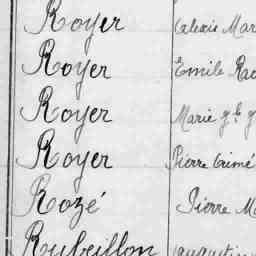 Royer Alexis Mar
Royer Emile Rao
Royer Marie
Royer Pierre Grimé
Rozé Pierre M
Rubeillon Augustin